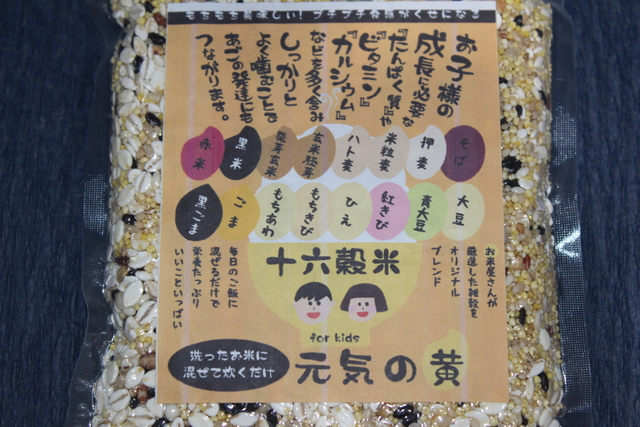 もちもち美味しい！プチプチ食感がくせになる
お子様の
成長に必要な
『たんぱく質』や
『ビタミン』
『カルシウム』
などを多く含み
しっかりと
よく噛むことで
あごの発達にも
つながります。
そば
押麦
米粒麦
ハト麦
玄米胚芽
発芽玄米
黒米
赤米
大豆
青大豆
紅きび
ひえ
もちきび
もちあわ
ごま
黒ごま
十六穀米
お米屋さんが
厳選した雑穀を
オリジナル
ブレンド
毎日のご飯に
混ぜるだけで
栄養たっぷり
いいこといっぱい
for kids
洗ったお米に
混ぜて炊くだけ
元気の黄